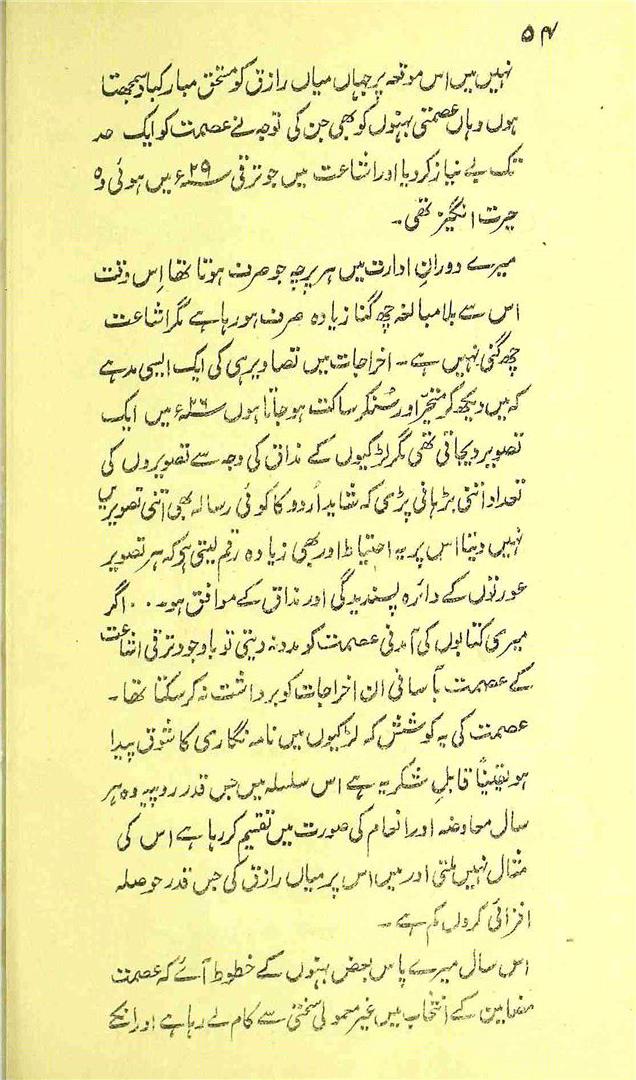 ۵۴
نہیں میں اس موقعہ پر جہاں میاں رازق کو مستحق مبارکباد سمجھتا
ہوں وہاں عصمتی بہنوں کو بھی جن کی توجہ نے عصمت کو ایک حد
تک بے نیاز کر دیا اور اشاعت میں جو ترقی ۲۹ء میں ہوئی وہ
حیرت انگیز تھی۔
میرے دوران ادارت میں ہر پرچہ جو صرف ہوتا تھا اِس وقت
اس سے بلا مبالغہ چھ گنا زیادہ صرف ہو رہا ہے مگر اشاعت
چھ گنی نہیں ہے۔ اخراجات میں تصاویر ہی کی ایک ایسی مد ہے
کہ میں دیکھ کر متحیر اور سُنکر ساکت ہو جاتا ہوں ۲۶ء میں ایک
تصویر دیجاتی تھی مگر لڑکیوں کے مذاق کی وجہ سے تصویروں کی
تعداد اتنی بڑہانی پڑی کہ شاید اُردو کا کوئی رسالہ بھی اتنی تصویریں
نہیں دیتا اس پر یہ احتیاط اور بھی زیادہ رقم لیتی ہے کہ ہر تصویر
عورتوں کے دائرہ پسندیدگی اور مذاق کے موافق ہو۔۔۔ اگر
میری کتابوں کی آمدنی عصمت کو مدد نہ دیتی تو باوجود ترقی اشاعت
کے عصمت بآسانی ان اخراجات کو برداشت نہ کر سکتا تھا۔
عصمت کی یہ کوشش کہ لڑکیوں میں نامہ نگاری کا شوق پیدا
ہو یقیناً قابلِ شکریہ ہے اس سلسلہ میں جس قدر روپیہ وہ ہر
سال معاوضہ اور انعام کی صورت میں تقسیم کر رہا ہے اس کی
مثال نہیں ملتی اور میں اس پر میاں رازق کی جس قدر حوصلہ
افزائی کروں کم ہے۔
اس سال میرے پاس بعض بہنوں کے خطوط آئے کہ عصمت
مضامین کے انتخاب میں غیر معمولی سختی سے کام لے رہا ہے اور انکے